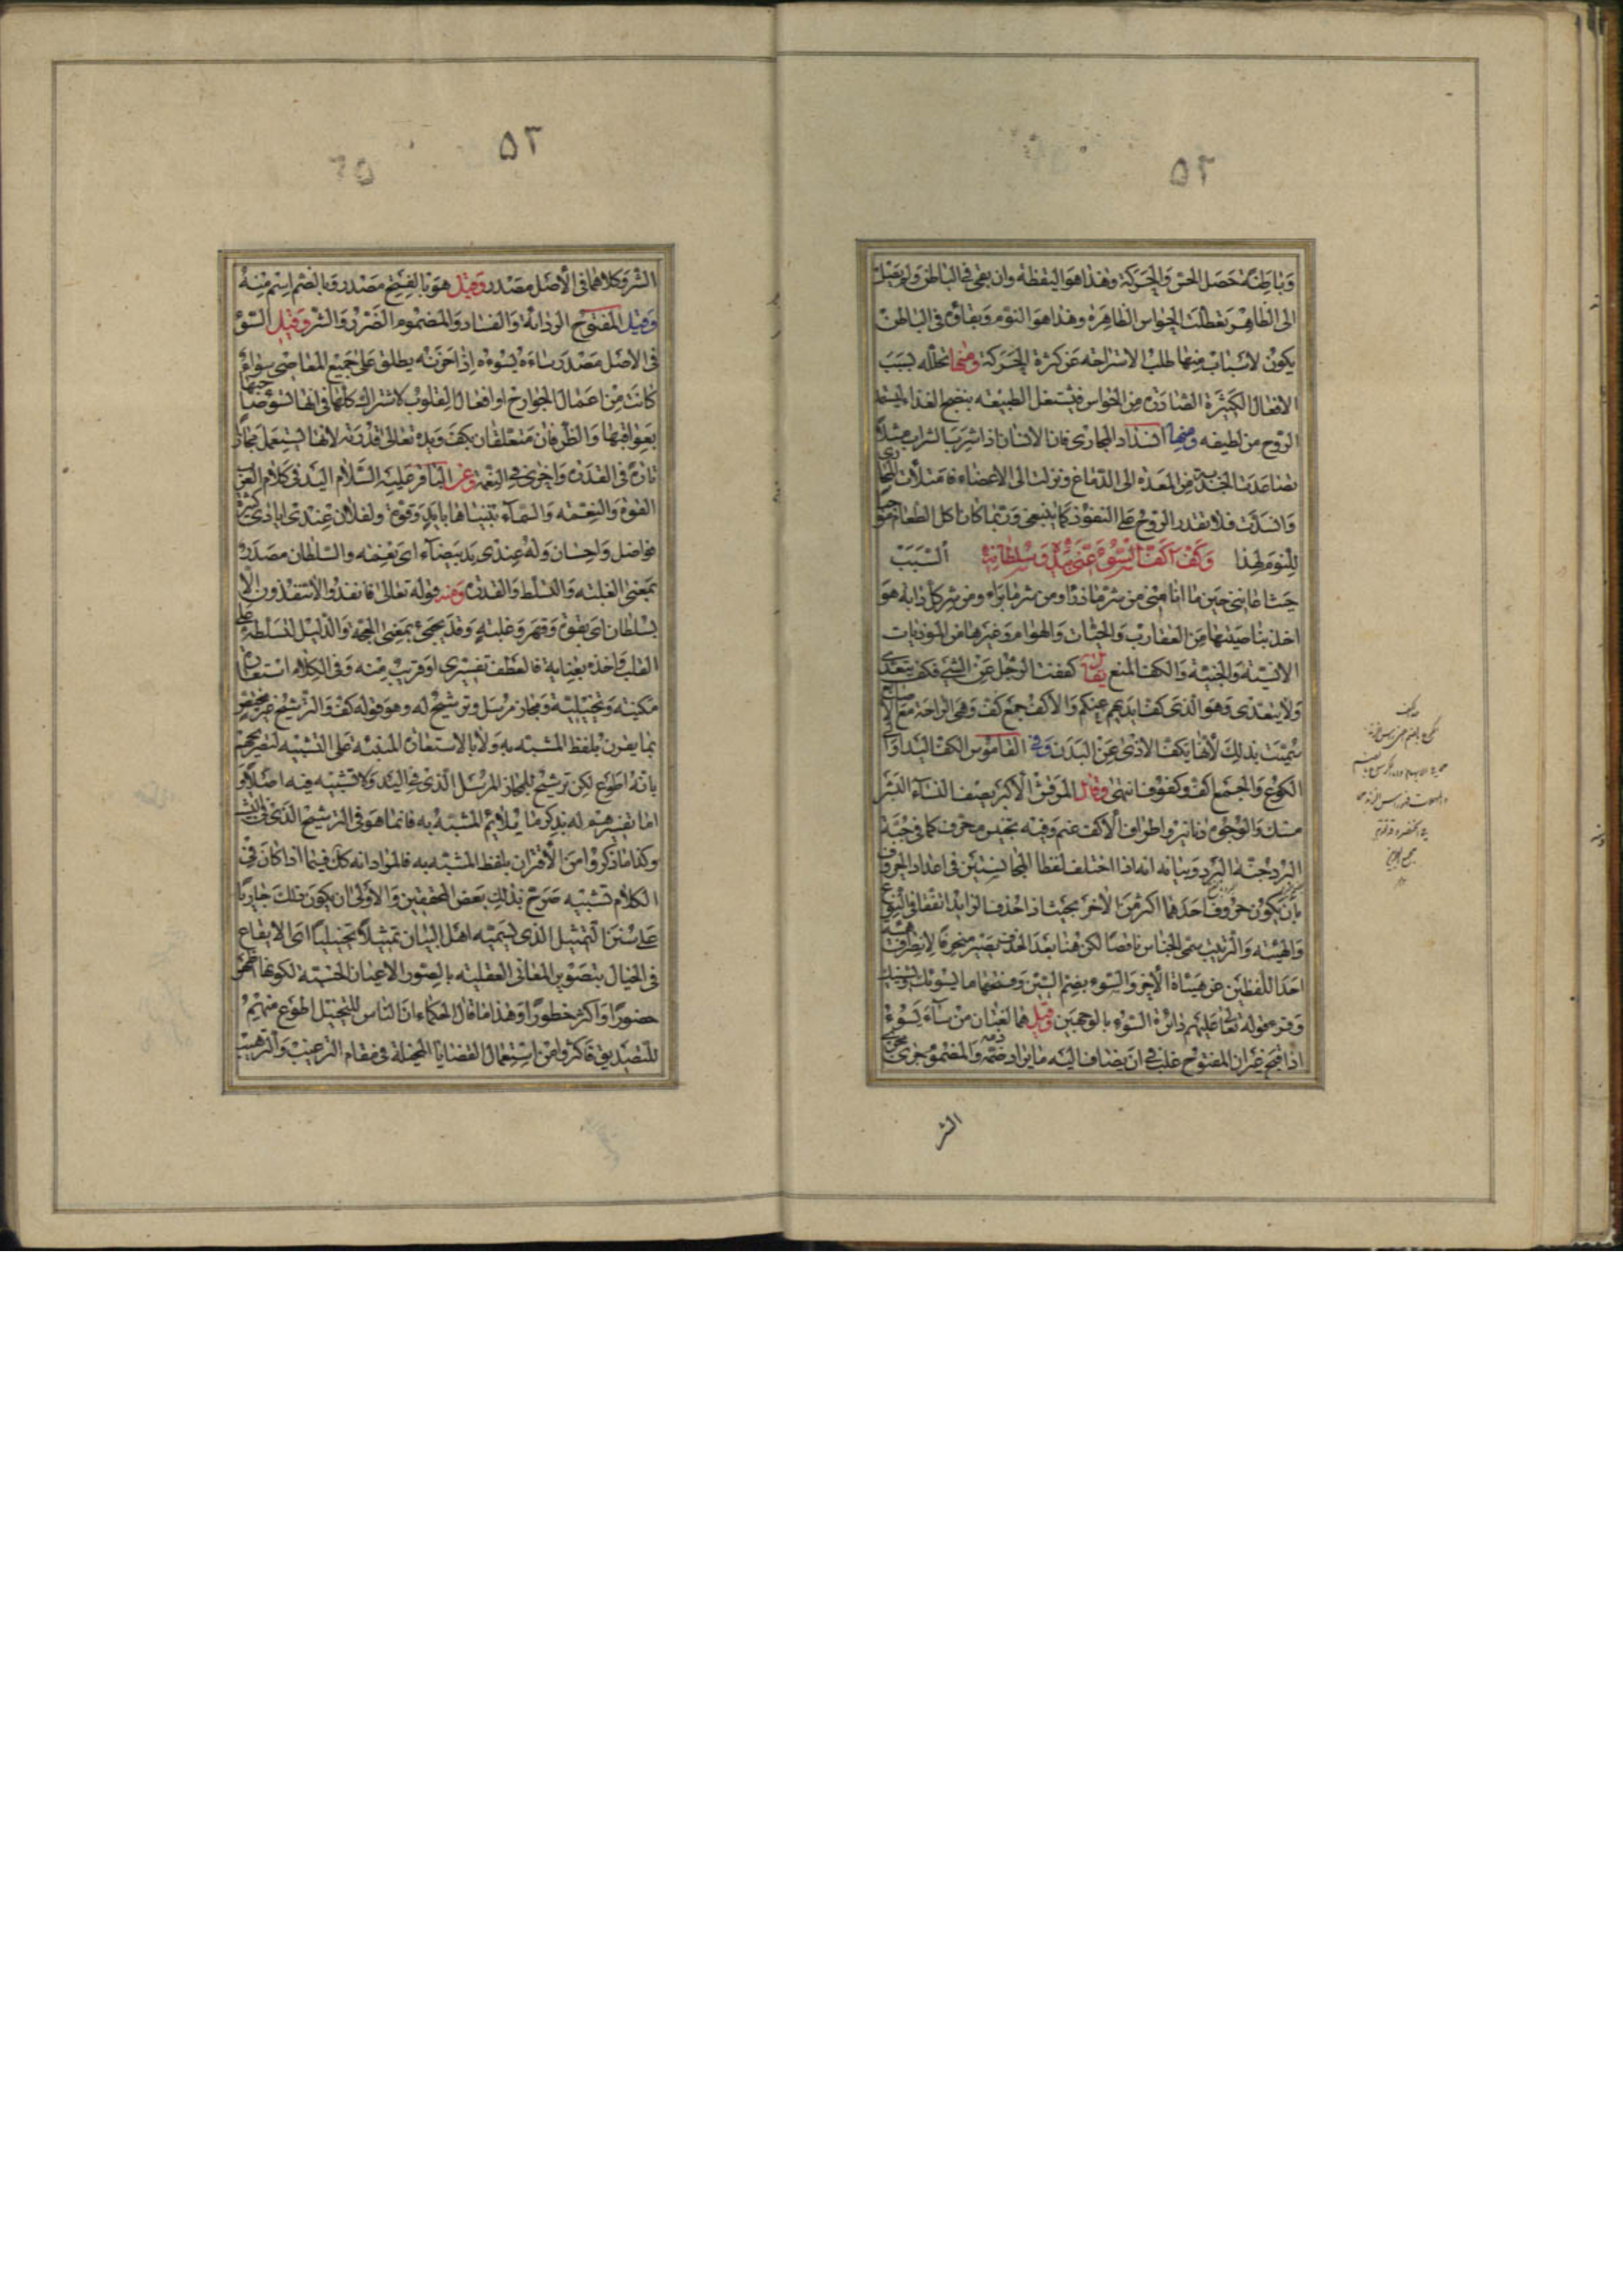 ۵۲
وباطنه حصل الحس والحركة وهذا هو اليقظة وان بقى فى الباطن ولم يصل
الى الظاهر تعطلت الحواس الظاهرة وهذا هو النوم وبقاؤه فى الباطن
يكون لاسباب منها طلب الاستراحة عن كثرة الحركة ومنها تحلله بسبب
الافعال الكثيرة الصادرة من الحواس فيشتغل الطبيعة بنضج الغذا
الروح من لطيفه ومنها انسداد المجارى فان الانسان اذا شرب الشراب مثلا
تصاعدت من المعدة الى الدماغ ونزلت الى الاعضاء فامتلأت المجارى
وانسدت فلا يقدر الروح على النفوذ كما ينبغى وربما كان اكل الطعام موجبا
للنوم لهذا وَكَفَّ اَكُفَّ السُّوءِ عَنّى بِيَدِهِ وَسُلْطانِهِ السبب
حيثما طاننى حين ما انا منى من شر ما ذرا ومن شر ما براه ومن شر كل دابة هو
اخذ بناصيتها من العقارب والحيات والهوام وغيرها من الموذيات
الانسية والجنية والكف المنع يقال كففت الرجل عن الشىء فكف يتعدى
ولا يتعدى وهو الذى كف ايديهم عنكم والاكف جمع كف وهى الراحة مع الاصابع
سميت بذلك لأنها تكف الاذى عن البدن وفى القاموس الكف اليد او الى
الكوع والجمع اكف وكفوف انتهى وقال المرقش الاكبر يصف النساء النشر
مسك والوجوه دنانير واطراف الاكف عنم وفيه تجنيس محرف كما فى جبة
البرد جنة البرد وبيانه انه اذا اختلف لفظا المتجانسين فى اعداد الحروف
بان يكون حروف احدهما اكثر من الاخر بحيث اذا حذف الزايد اتفقا فى النوع
والهيئة والترتيب سمى الجناس ناقصا لكن هنا بعد الحذف يصير منحرفا لانطراف
احد اللفظين عن هيئة الاخر والسوء بضم السين وفتحها ما يسوئك
وقرء قوله تعالى عليهم دائرة السوء بالوجهين وقيل هما لغتان من ساء يسوء
اذا قبح غير ان المفتوح غلب فى ان يضاف اليه ما يراد ذمه والمضموم جرى مجرى
الشر
۵۳
الشر وكلاهما فى الأصل مصدر وقيل هو بالفتح مصدر وبالضم اسم منه
وقيل المفتوح الردائة والفساد والمضموم الضرر والشر وقيل السوء
فى الاصل مصدر ساءه يسوءه اذا احزنه يطلق على جميع المعاصى سواء
كانت من اعمال الجوارح او افعال القلوب لاشتراك كلها فى انها تسوء صاحبها
بعواقبها والظرفان متعلقان بكف ويده تعالى قدرته لانها يستعمل مجازا
تارة فى القدرة واخرى فى النعمة وعن الباقر عليه السلام اليد فى كلام العرب
القوة والنعمة والسماء بنيناها بايد وقوة ولفلان عندى ايادى كثيرة
فواضل واحسان وله عندى يد بيضاء اى نعمة والسلطان مصدر
بمعنى الغلبة والتسلط والقدرة ومنه قوله تعالى فانفذوا لا تنفذون الا
بسلطان اى بقوة وقهر وغلبة وقد يجىء بمعنى الحجة والدليل لتسلطه على
القلب واخذه بعنايه فالعطف تفسيرى او قريب منه وفى الكلام استعارة
مكنية وتخييلية ومجاز مرسل وترشيح له وهو قوله كف والترشيح غير مختص
بما يقرن بلفظ المشبه به ولا بالاستعارة المبنية على التشبيه لتصريحهم
بانه اطوع لكن ترشيح للمجاز المرسل الذى فى اليد ولا تشبيه فيه اصلا و
اما تفسيرهم له بذكر ما يلايم المشبه به فانما هو فى الترشيح الذى فى التشبيه
وكذا ما ذكروا من الاقتران بلفظ المشبه به فالمراد انه كل فيما اذا كان فى
الكلام تشبيه صرح بذلك بعض المحققين والاولى ان يكون ذلك جاريا
على سنن التمثيل الذى يسميه اهل البيان تمثيلا تخييليا اى الايقاع
فى الخيال بتصوير المعانى العقلية بالصور الاعيان الحسية لكونها اظهر
حضورا واكثر خطورا وهذا ما قال الحكماء ان الناس للتخيل اطوع منهم
للتصديق فاكثروا من استعمال القضايا المخيلة فى مقام الترغيب والترهيب